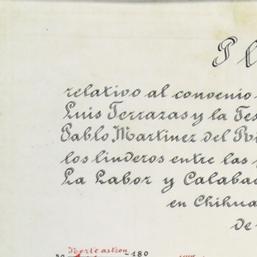 Pl
relativo al convenio
Luis Terrazas y la Tes
Pablo Martinez del Ri
los linderos entre las
La Labor y Calabac
en Chihua
de
Norte astron
180